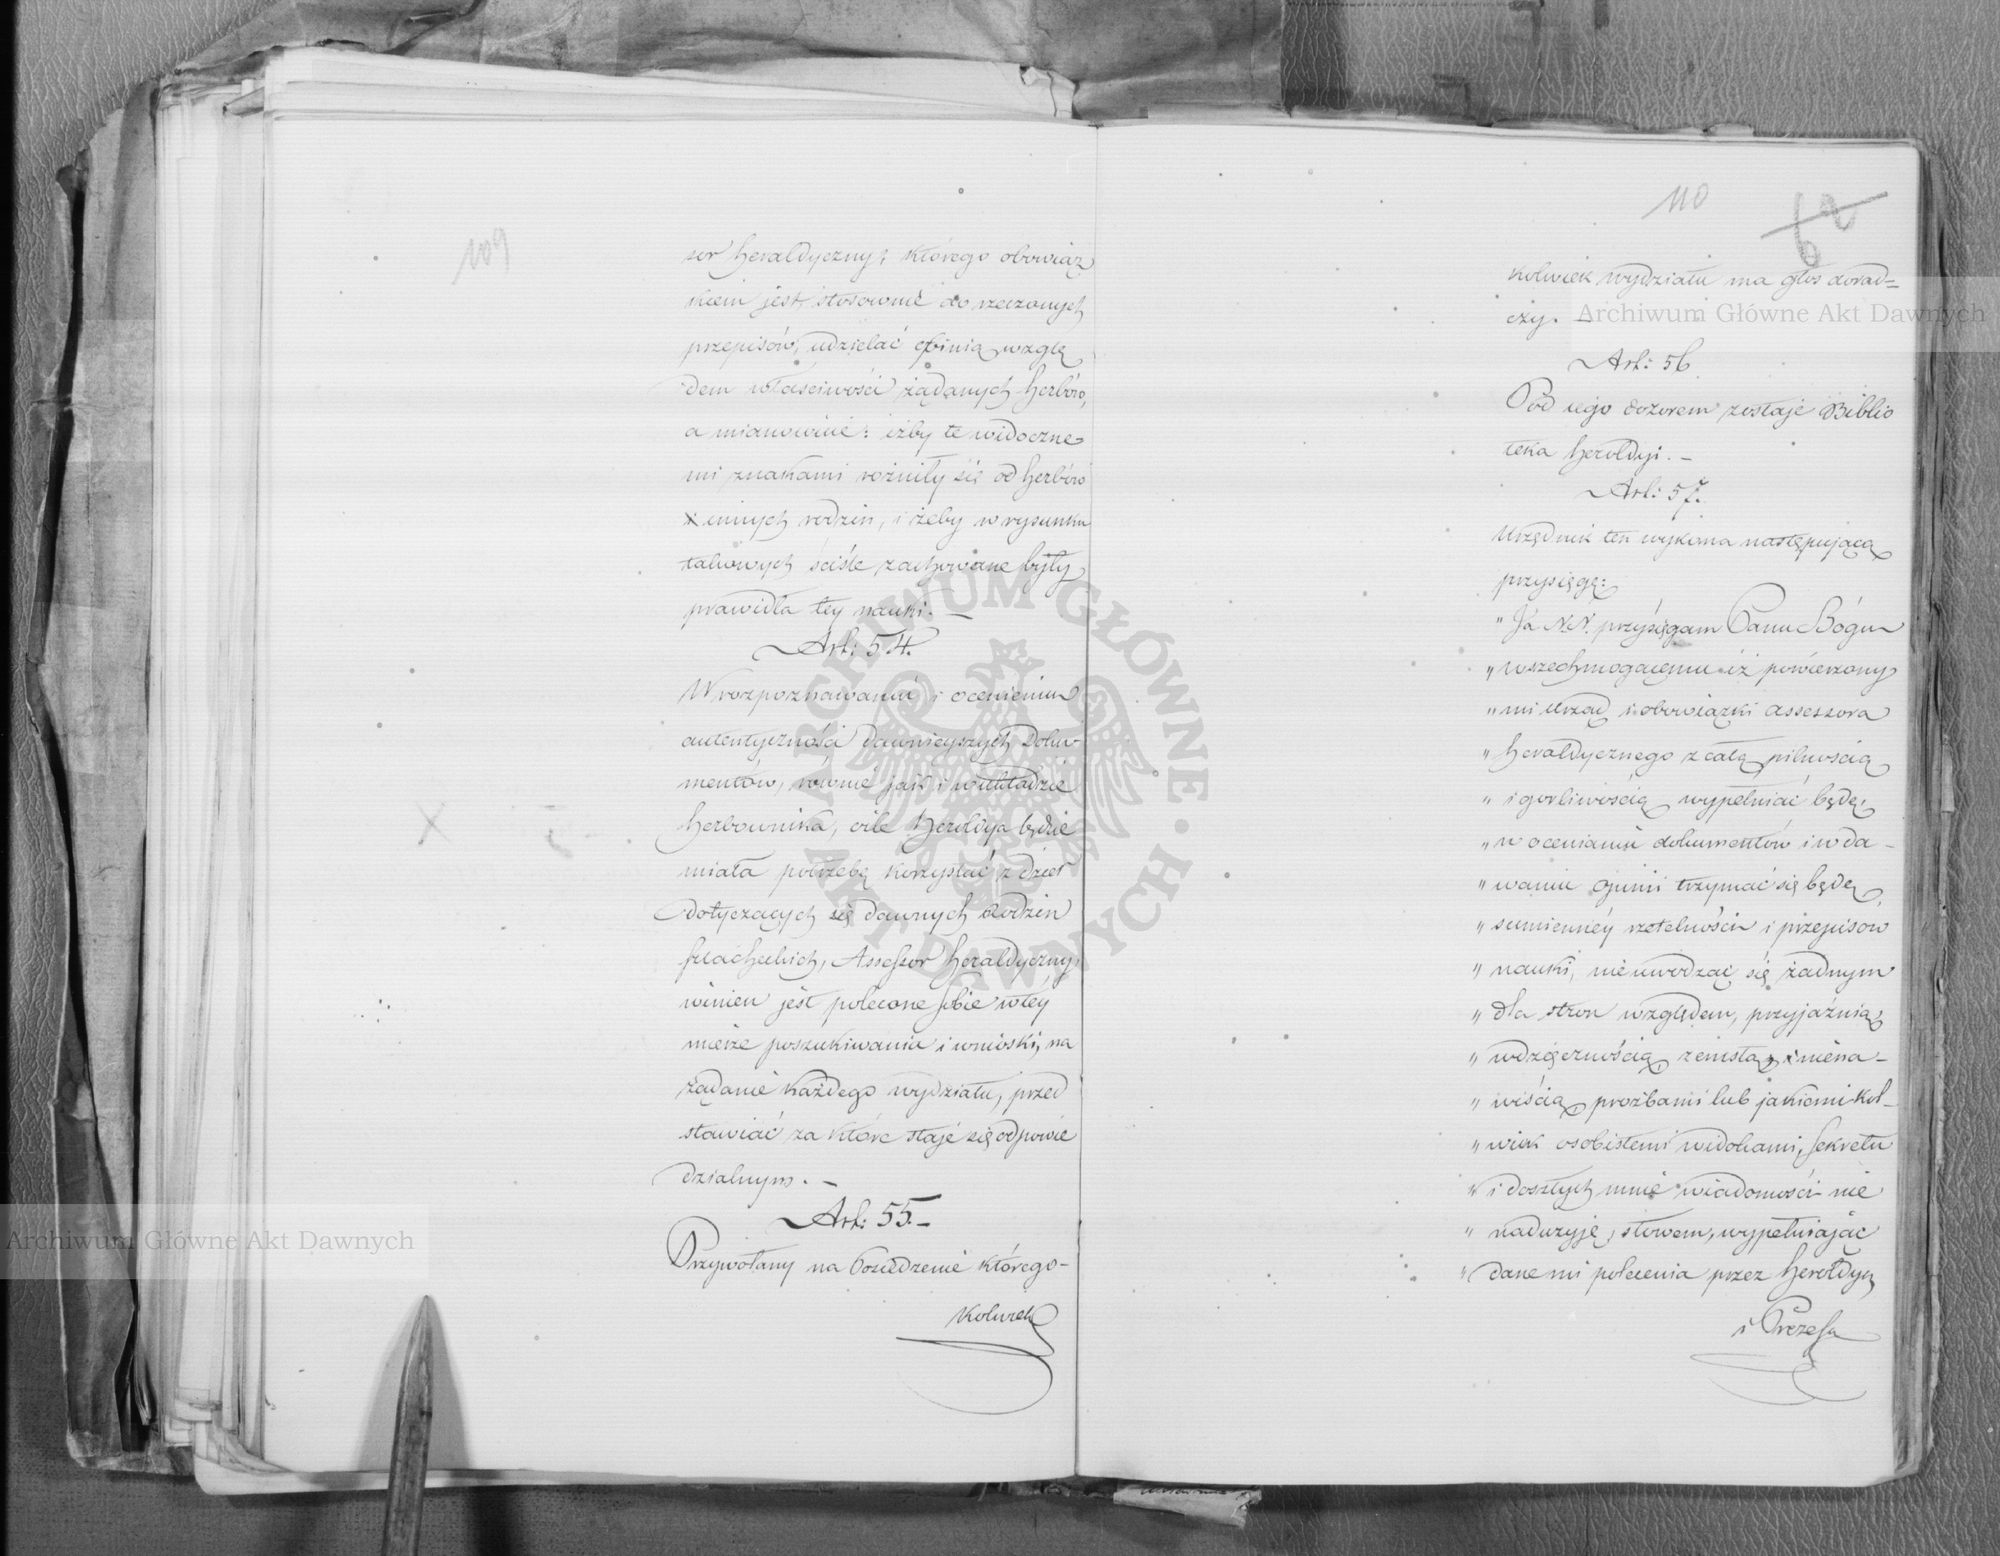 109
sor heraldyczny, którego obowiąz
kiem jest stosownie do rzeczonych
przepisów, udzielać opinią wzglę
dem właściwości żądanych herbów,
a mianowicie: iżby te widoczne-
mi znakami rożniły się od herbów
innych rodzin, i żeby w rysunku
takowych ściśle zachowane były
prawidła tey nauki. –
Art: 54.
W rozpoznawaniu i ocenieniu
autentyczności dawnieyszych doku-
mentów, równie jak i w układzie
herbownika, oile Heroldya będzie
miała potrzebę korzystać z dzieł
dotyczących się dawnych Rodzin
szlacheckich, Assessor heraldyczny,
winien jest polecone sobie w téy
mierze poszukiwania i wnioski, na
żądanie każdego wydziału, przed
stawiać za które staje się odpowie
dzialnym. –
Art: 55. –
Przywołany na Posiedzenie którego-
kolwiek
110
62
kolwiek wydziału ma głos dorad=
czy. –
Art: 56.
Pod iego dozorem zostaje Biblio
teka heroldyi. –
Art: 57.
Urzędnik ten wykona następującą
przysięgę:
" Ja N.N. przysięgam Panu Bogu
" wszechmogącemu iż powierzony
" mi Urząd i obowiązki assessora
" heraldycznego z całą pilnością
" i gorliwością wypełniać będę,
" w ocenianiu dokumentów i w da-
" waniu opinii trzymać się będę
" sumiennéy rzetelności i przepisow
" nauki, nie uwodząc się żadnym
" dla stron względem, przyjaźnią,
" wdzięcznością, zemstą, niena-
" wiścią, prożbami lub jakiemi kol-
" wiek osobistemi widokami, Sekretu
" i doszłych mnie wiadomości nie
" nadużyję, słowem, wypełniając
" dane mi polecenia przez Heroldyą
i Prezesa
Archiwum Główne Akt Dawnych
Archiwum Główne Akt Dawnych
ARCHIWUM GŁÓWNE • AKT DAWNYCH •